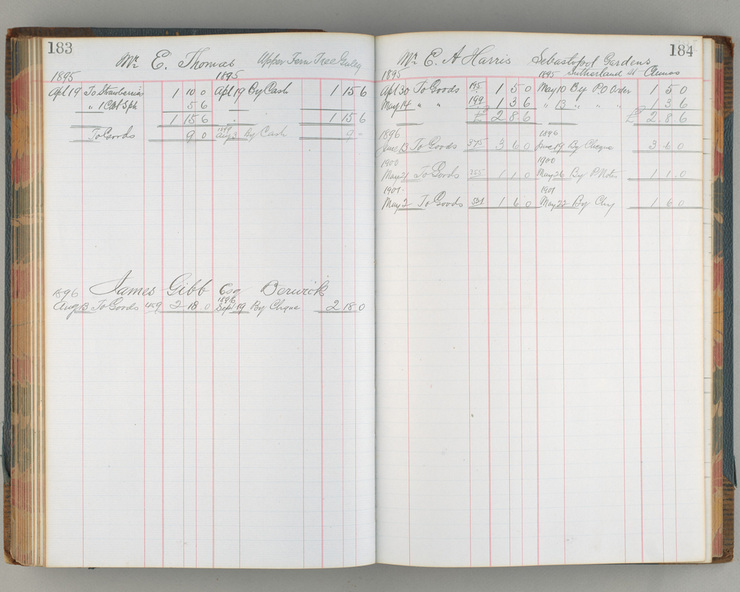 183
Mr. E. Thomas Upper Fern Tree Gully
1895 1895
Apl 19 To Strawberries 1 10 0 Apl 19 By Cash 1 15 6
" 1 5 6
1 15 6 1 15 6
To Goods 9 0 By Cash 9 -
James Gibb Esq Berwick
1896 1896
Aug 13 To Goods 2 18 0 Sep 19 By Cheque 2 18 0
184
Mr. E. A Harris Sebastopol Gardens
1895 1895 Sutherland St
Apl 30 To Goods 195 1 5 0 May 10 By P.O Order 1 5 0
May 14 " " 199 1 3 6 " 13 " " 1 3 6
£ 2 8 6 £ 2 8 6
1896 1896
13 To Goods 3 6 0 19 By Cheque 3 6 0
1900 1900
May 21 To Goods 1 1 0 May 26 By P Note 1 1 0
1901 1901
May 2 To Goods 1 6 0 May 22 By Chq 1 6 0